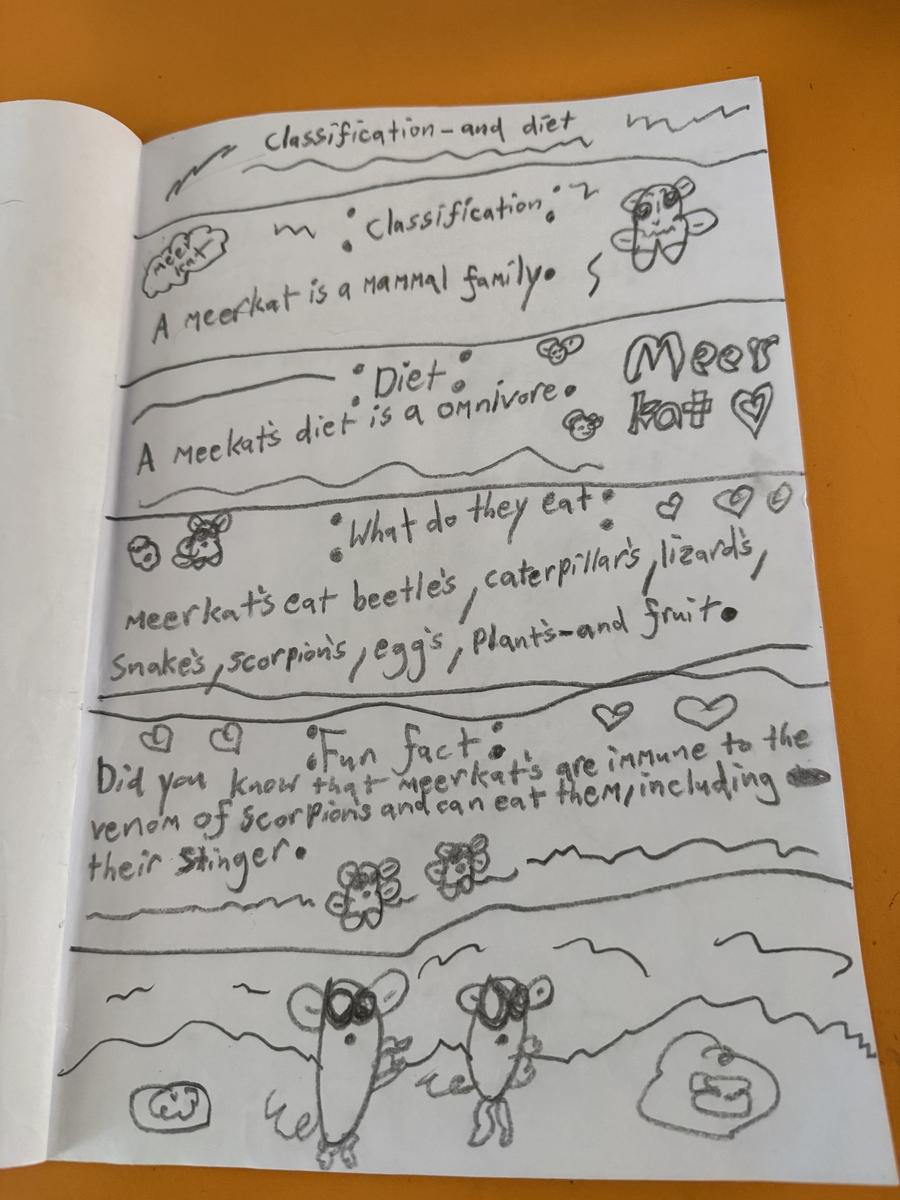 Classification-and diet
Classification
Meer
kat
A Meerkat is a Mammal family.
:Diet:
A Meekat's diet is a omnivore.
Meer
kat
:What do they eat:
Meerkat's eat beetle's, caterpillar's, lizard's,
Snake's, scorpion's, egg's, Plant's-and fruit.
:Fun fact:
Did you know that meerkat's are immune to the
venom of Scorpion's and can eat them, including
their Stinger.